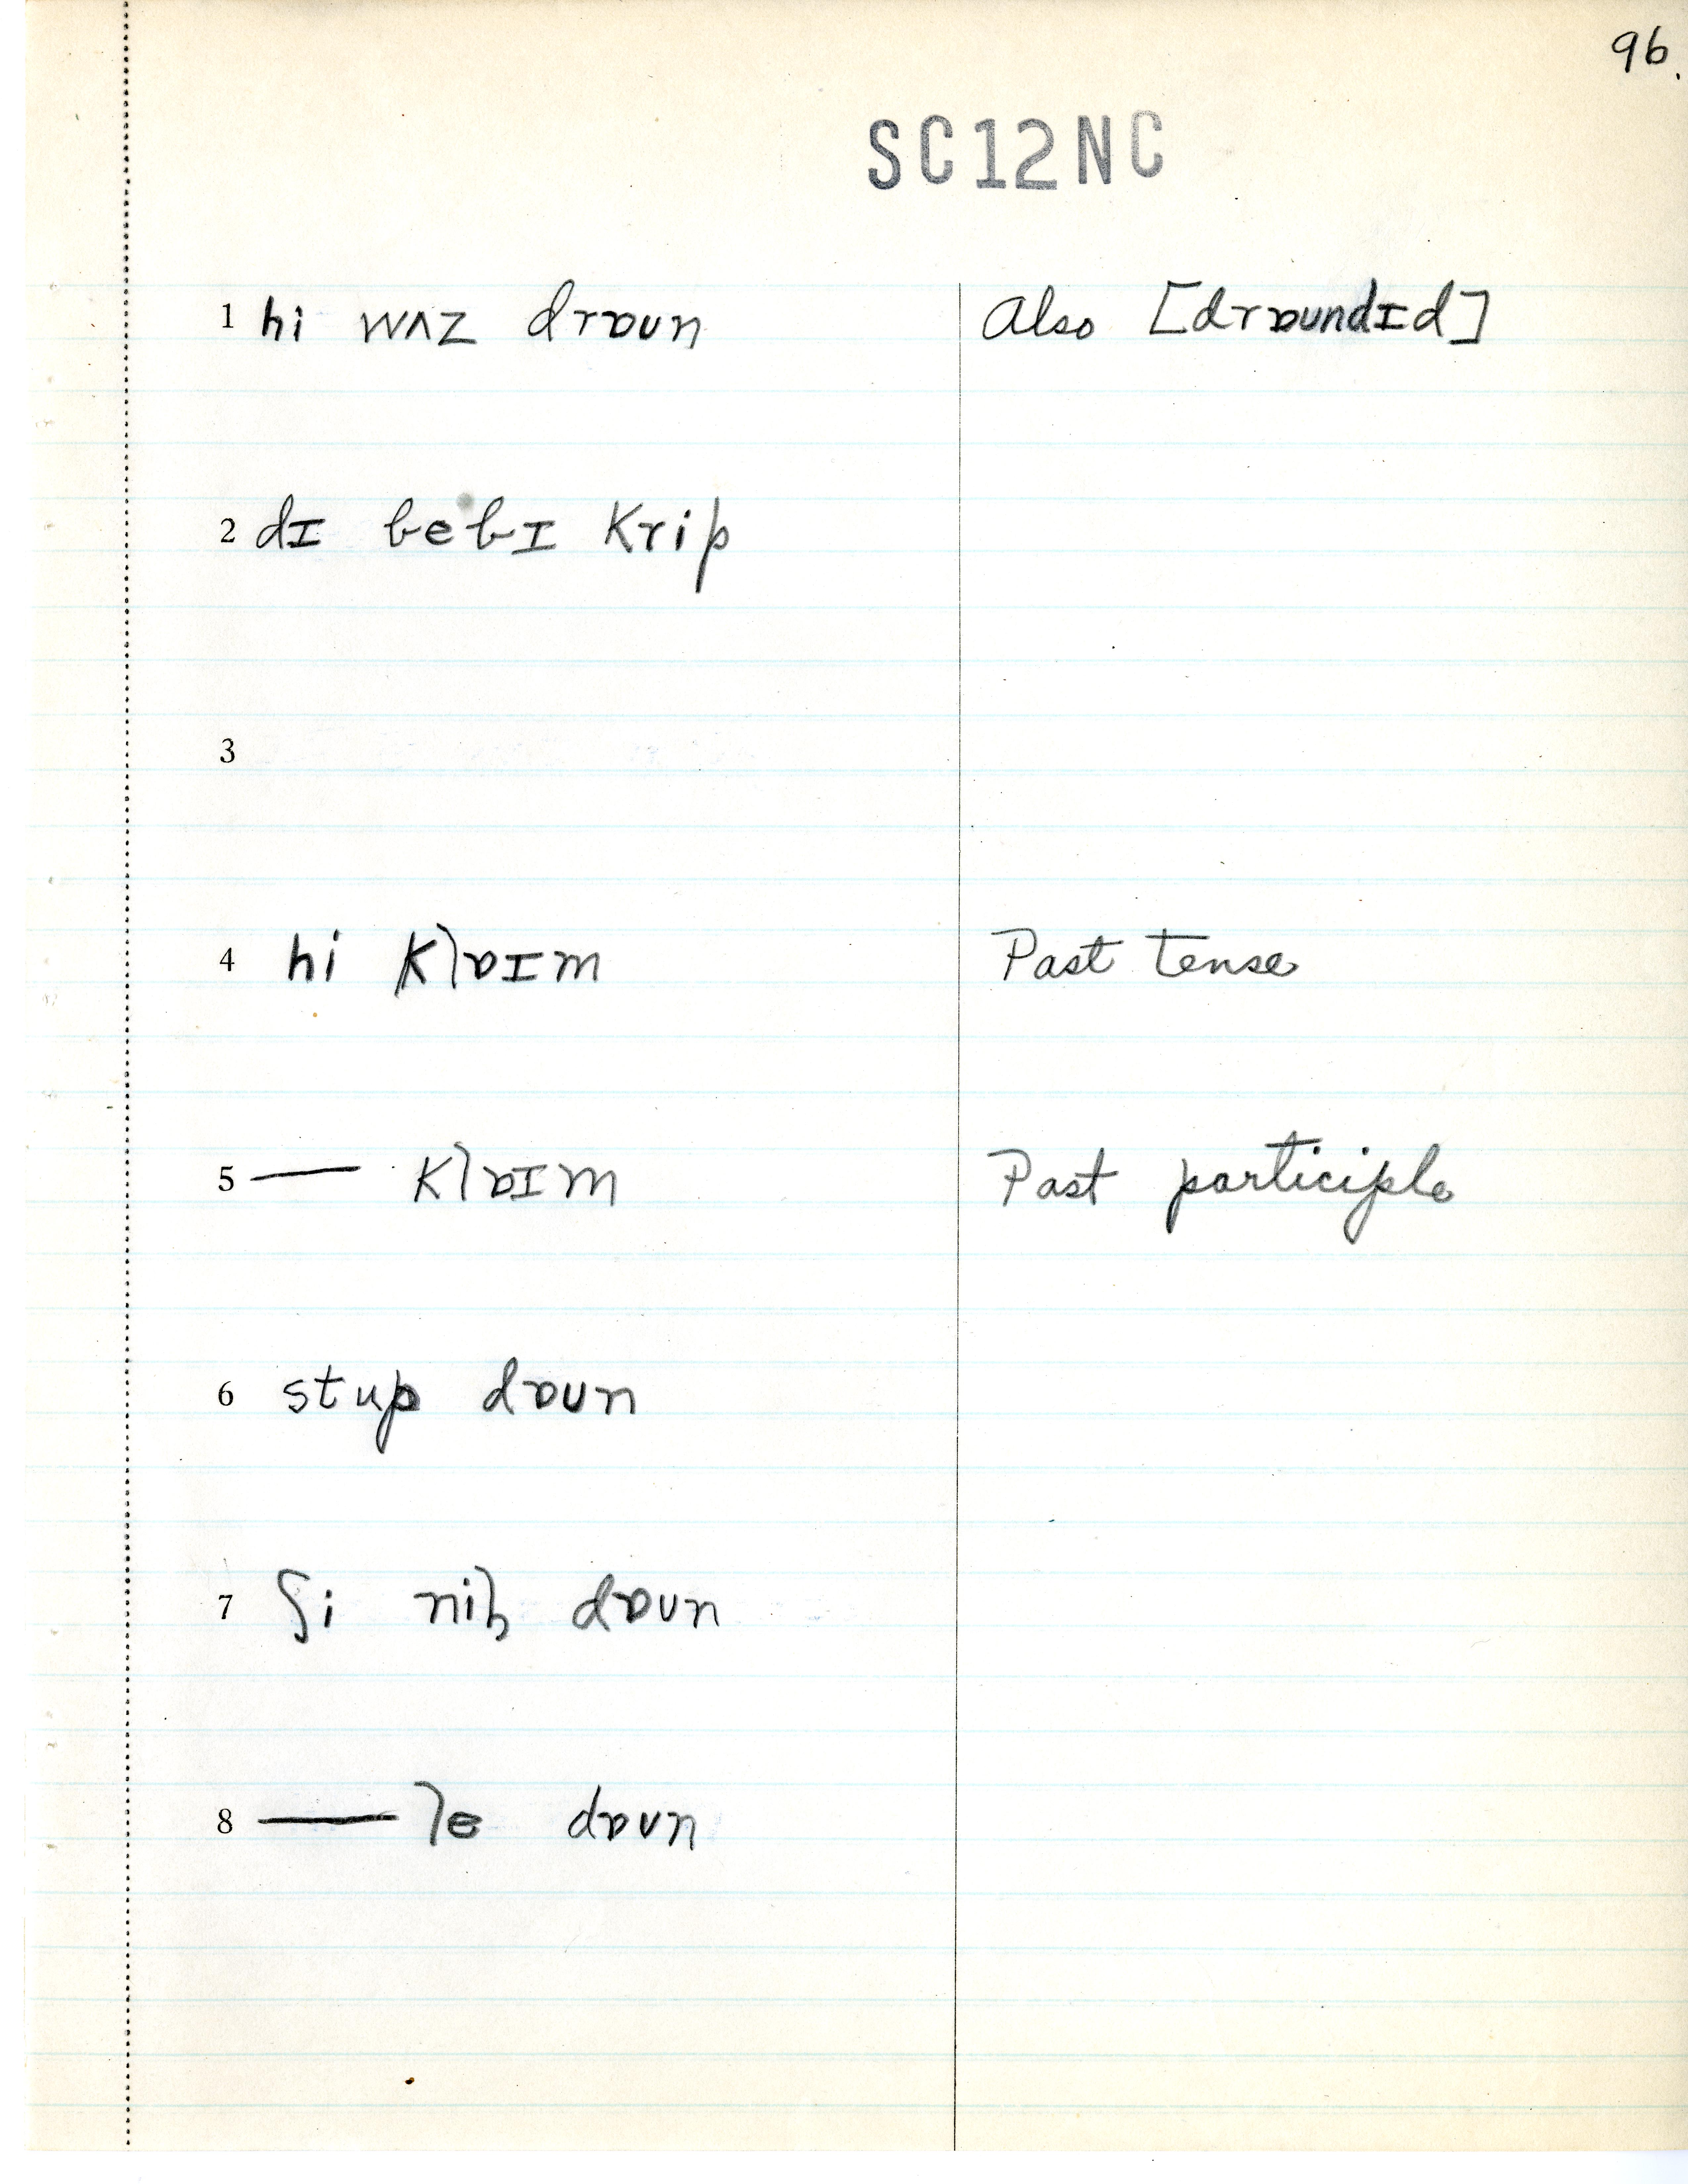 96.
SC12NC
1 hi wʌz drɒun Also [drɒundɪd]
2 dɪ bebɪ krip
3
4 hi klɒɪm Past tense
5 — klɒɪm Past participle
6 stup dɒun
7 ʃi niɦ dɒun
8 — le dɒun